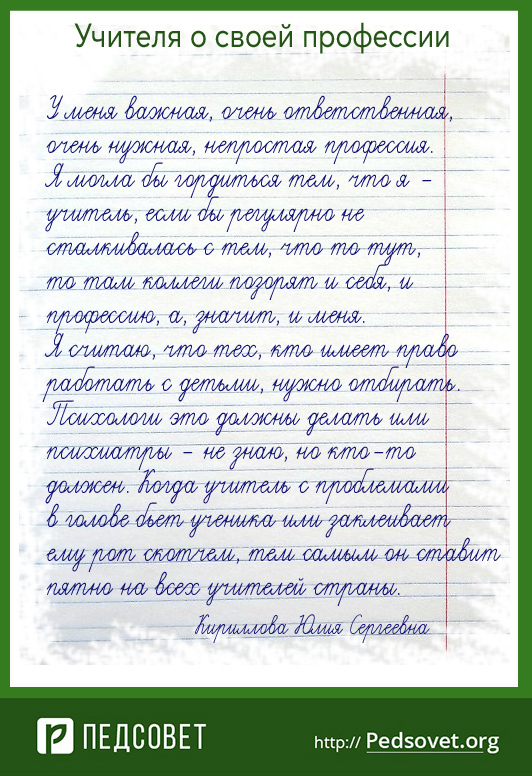 Учителя о своей профессии
У меня важная, очень ответственная,
очень нужная, непростая профессия.
Я могла бы гордиться тем, что я –
учитель, если бы регулярно не
сталкивалась с тем, что то тут,
то там коллеги позорят и себя, и
профессию, а, значит, и меня.
Я считаю, что тех, кто имеет право
работать с детьми, нужно отбирать.
Психологи это должны делать или
психиатры – не знаю, но кто-то
должен. Когда учитель с проблемами
в голове бьет ученика или заклеивает
ему рот скотчем, тем самым он ставит
пятно на всех учителей страны.
Кириллова Юлия Сергеевна
ПЕДСОВЕТ
http:// Pedsovet.org